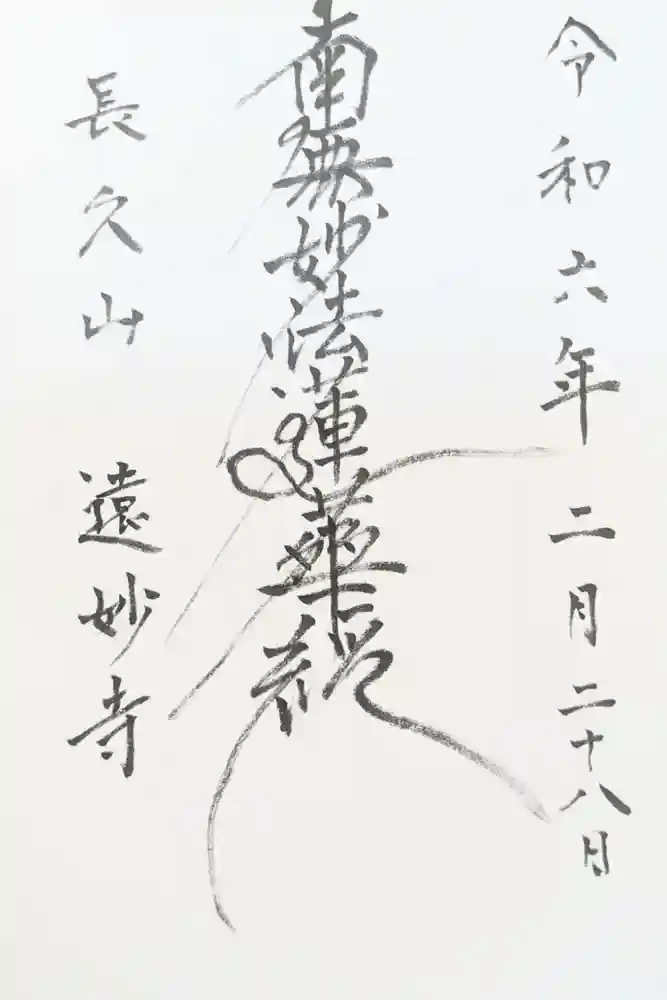 令和六年二月二十八日
南無妙法蓮華経
長久山 遠妙寺